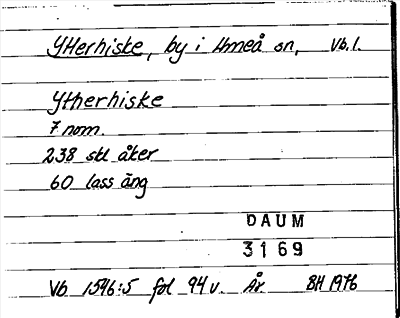 Ytterhiske, by i Umeå sn, Vb. l.
Ytherhiske
7 nom.
238 skl åker
60 lass äng
DAUM
3169
Vb 1546:5 fol 94 v. År BH 1976